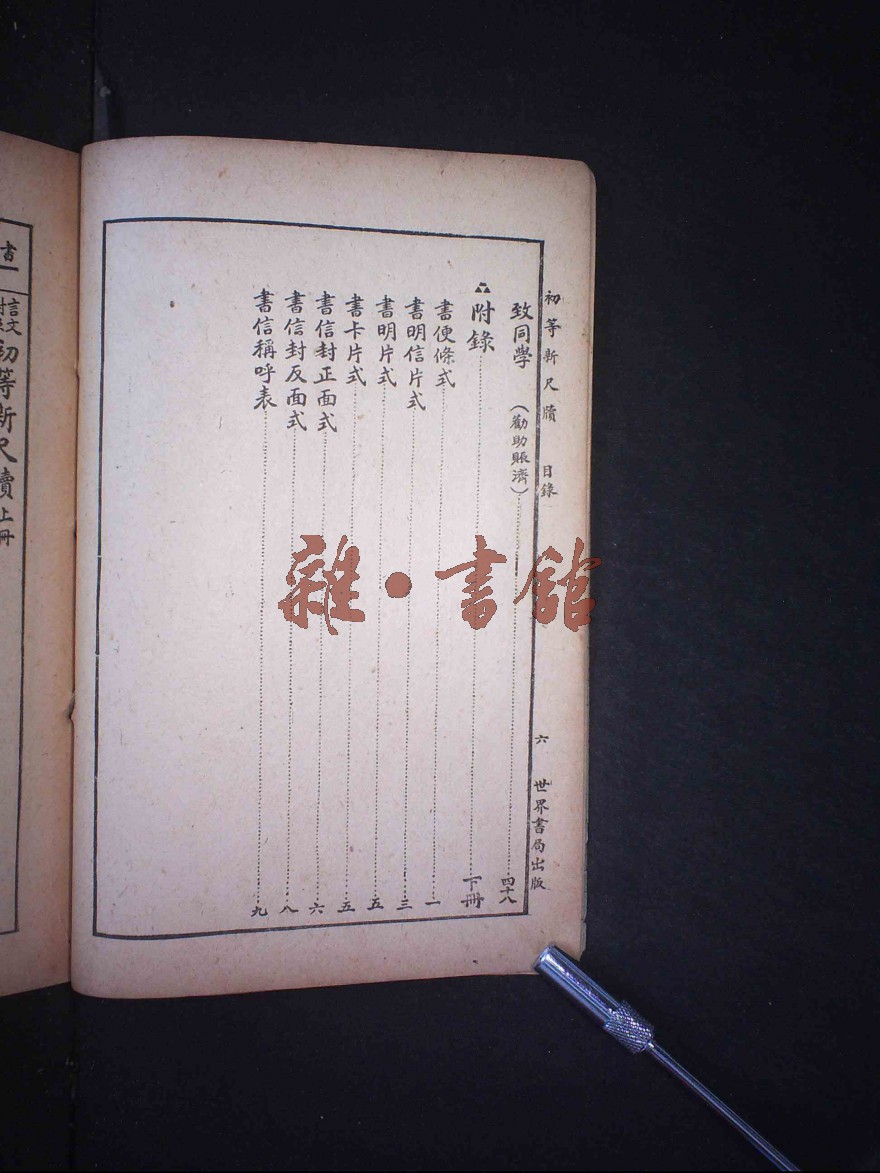 初等新尺牘 目錄 六 世界書局出版
致同學 (勸助賑濟)……四十八
附錄……下冊
書便條式……一
書明信片式……三
書明片式……五
書卡片式……五
書信封正面式……六
書信封反面式……八
書信稱呼表……九
書一
言文對照 初等新尺牘 上冊
雜·書館